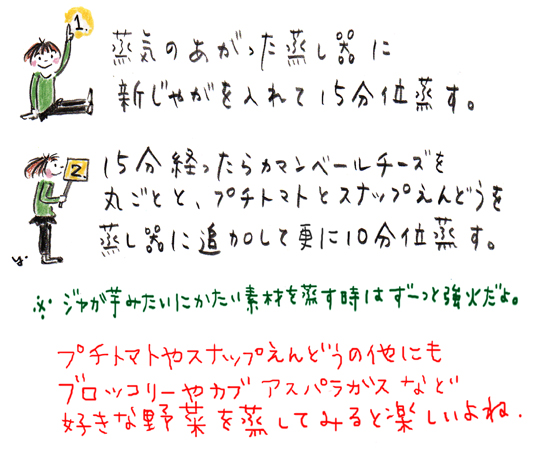 1.
蒸気のあがった蒸し器に
新じゃがを入れて15分位蒸す。
2.
15分経ったらカマンベールチーズを
丸ごとと、プチトマトとスナップえんどうを
蒸し器に追加して更に10分位蒸す。
y.
※・ジャガ芋みたいにかたい素材を蒸す時はずーっと強火だよ。
プチトマトやスナップえんどうの他にも
ブロッコリーやカブ アスパラガスなど
好きな野菜を蒸してみると楽しいよね.